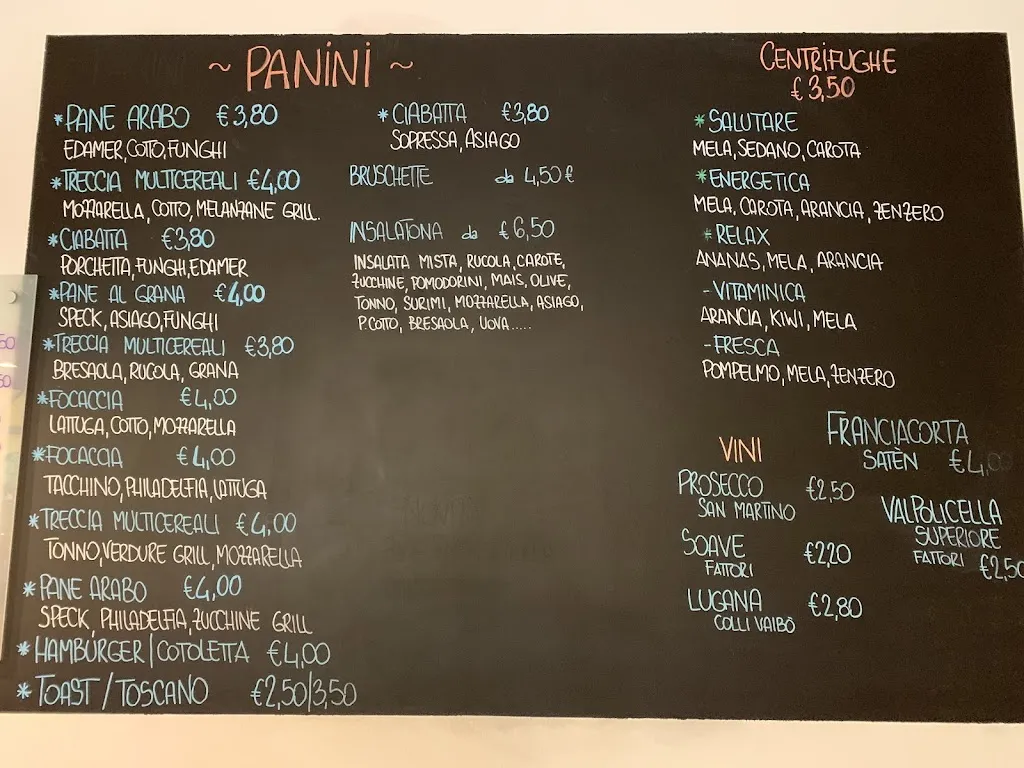 ~ PANINI ~
*PANE ARABO €3,80
EDAMER, COTTO, FUNGHI
*TRECCIA MULTICEREALI €4,00
MOZZARELLA, COTTO, MELANZANE GRILL.
*CIABATTA €3,80
PORCHETTA, FUNGHI, EDAMER
*PANE AL GRANA €4,00
SPECK, ASIAGO, FUNGHI
*TRECCIA MULTICEREALI €3,80
BRESAOLA, RUCOLA, GRANA
*FOCACCIA €4,00
LATTUGA, COTTO, MOZZARELLA
*FOCACCIA €4,00
TACCHINO, PHILADELFIA, LATTUGA
*TRECCIA MULTICEREALI €4,00
TONNO, VERDURE GRILL, MOZZARELLA
*PANE ARABO €4,00
SPECK, PHILADELFIA, ZUCCHINE GRILL
*HAMBURGER/COTOLETTA €4,00
*TOAST/TOSCANO €2,50/3,50
*CIABATTA €3,80
SOPRESSA, ASIAGO
BRUSCHETTE da 4,50€
INSALATONA da €6,50
INSALATA MISTA, RUCOLA, CAROTE,
ZUCCHINE, POMODORINI, MAIS, OLIVE,
TONNO, SURIMI, MOZZARELLA, ASIAGO,
P.COTTO, BRESAOLA, UOVA.....
CENTRIFUGHE
€3,50
*SALUTARE
MELA, SEDANO, CAROTA
*ENERGETICA
MELA, CAROTA, ARANCIA, ZENZERO
*RELAX
ANANAS, MELA, ARANCIA
-VITAMINICA
ARANCIA, KIWI, MELA
-FRESCA
POMPELMO, MELA, ZENZERO
VINI
PROSECCO €2,50
SAN MARTINO
SOAVE €2,20
FATTORI
LUGANA €2,80
COLLI VAIBÒ
FRANCIACORTA
SATÈN €4,00
VALPOLICELLA
SUPERIORE
FATTORI €2,50